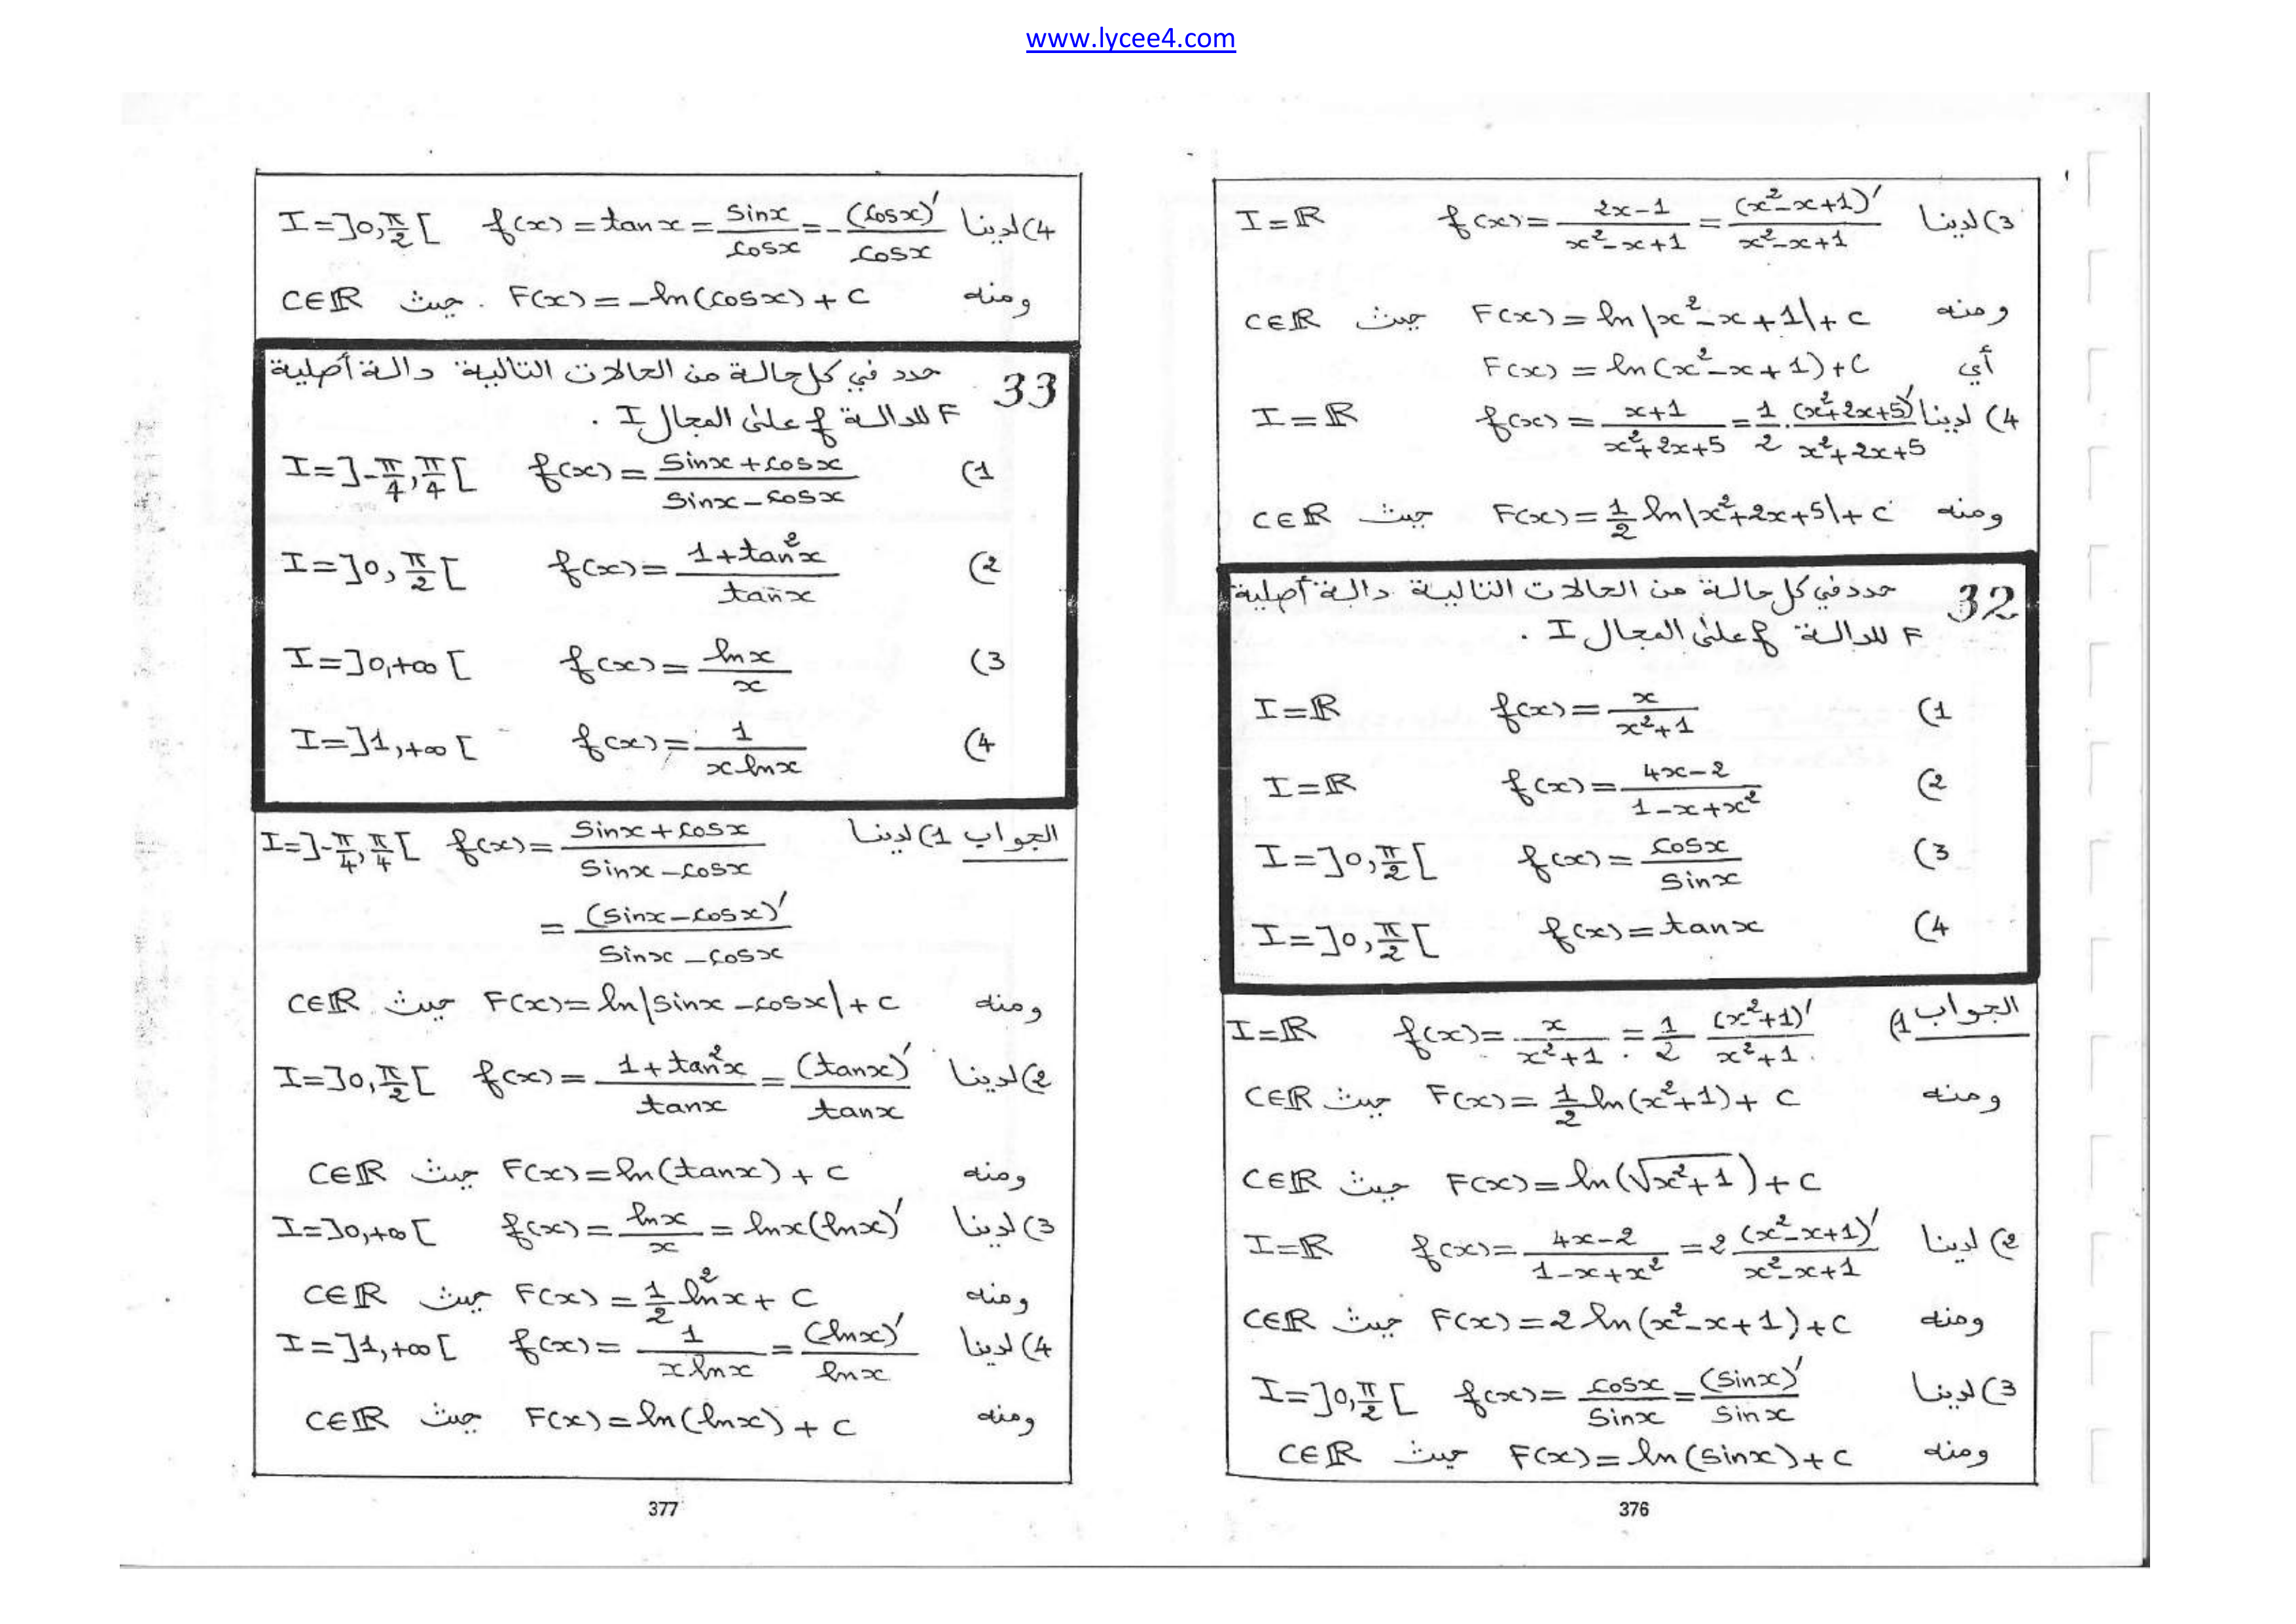 www.lycee4.com
3) لدينا f(x) = \frac{2x-1}{x^2-x+1} = \frac{(x^2-x+1)'}{x^2-x+1} I=ℝ
ومنه F(x) = ln|x^2-x+1|+c حيث c∈ℝ
أي F(x) = ln(x^2-x+1)+c
4) لدينا f(x) = \frac{x+1}{x^2+2x+5} = \frac{1}{2} . \frac{(x^2+2x+5)'}{x^2+2x+5} I=ℝ
ومنه F(x) = \frac{1}{2} ln|x^2+2x+5|+c حيث c∈ℝ
32 حدد في كل حالة من الحالات التالية دالة أصلية
F للدالة f على المجال I .
1) f(x) = \frac{x}{x^2+1} I=ℝ
2) f(x) = \frac{4x-2}{1-x+x^2} I=ℝ
3) f(x) = \frac{cosx}{sinx} I=]0,\frac{π}{2}[
4) f(x) = tanx I=]0,\frac{π}{2}[
الجواب 1) f(x) = \frac{x}{x^2+1} = \frac{1}{2} \frac{(x^2+1)'}{x^2+1} I=ℝ
ومنه F(x) = \frac{1}{2} ln(x^2+1)+c حيث c∈ℝ
F(x) = ln(\sqrt{x^2+1})+c حيث c∈ℝ
2) لدينا f(x) = \frac{4x-2}{1-x+x^2} = 2 \frac{(x^2-x+1)'}{x^2-x+1} I=ℝ
ومنه F(x) = 2 ln(x^2-x+1)+c حيث c∈ℝ
3) لدينا f(x) = \frac{cosx}{sinx} = \frac{(sinx)'}{sinx} I=]0,\frac{π}{2}[
ومنه F(x) = ln(sinx)+c حيث c∈ℝ
376
4) لدينا f(x) = tanx = \frac{sinx}{cosx} = -\frac{(cosx)'}{cosx} I=]0,\frac{π}{2}[
ومنه F(x) = -ln(cosx)+c . حيث c∈ℝ
33 حدد في كل حالة من الحالات التالية دالة أصلية
F للدالة f على المجال I .
1) f(x) = \frac{sinx+cosx}{sinx-cosx} I=]-\frac{π}{4},\frac{π}{4}[
2) f(x) = \frac{1+tan^2x}{tanx} I=]0,\frac{π}{2}[
3) f(x) = \frac{lnx}{x} I=]0,+∞[
4) f(x) = \frac{1}{x lnx} I=]1,+∞[
الجواب 1) لدينا f(x) = \frac{sinx+cosx}{sinx-cosx} I=]-\frac{π}{4},\frac{π}{4}[
= \frac{(sinx-cosx)'}{sinx-cosx}
ومنه F(x) = ln|sinx-cosx|+c حيث c∈ℝ
2) لدينا f(x) = \frac{1+tan^2x}{tanx} = \frac{(tanx)'}{tanx} I=]0,\frac{π}{2}[
ومنه F(x) = ln(tanx)+c حيث c∈ℝ
3) لدينا f(x) = \frac{lnx}{x} = lnx(lnx)' I=]0,+∞[
ومنه F(x) = \frac{1}{2} ln^2x+c حيث c∈ℝ
4) لدينا f(x) = \frac{1}{x lnx} = \frac{(lnx)'}{lnx} I=]1,+∞[
ومنه F(x) = ln(lnx)+c حيث c∈ℝ
377